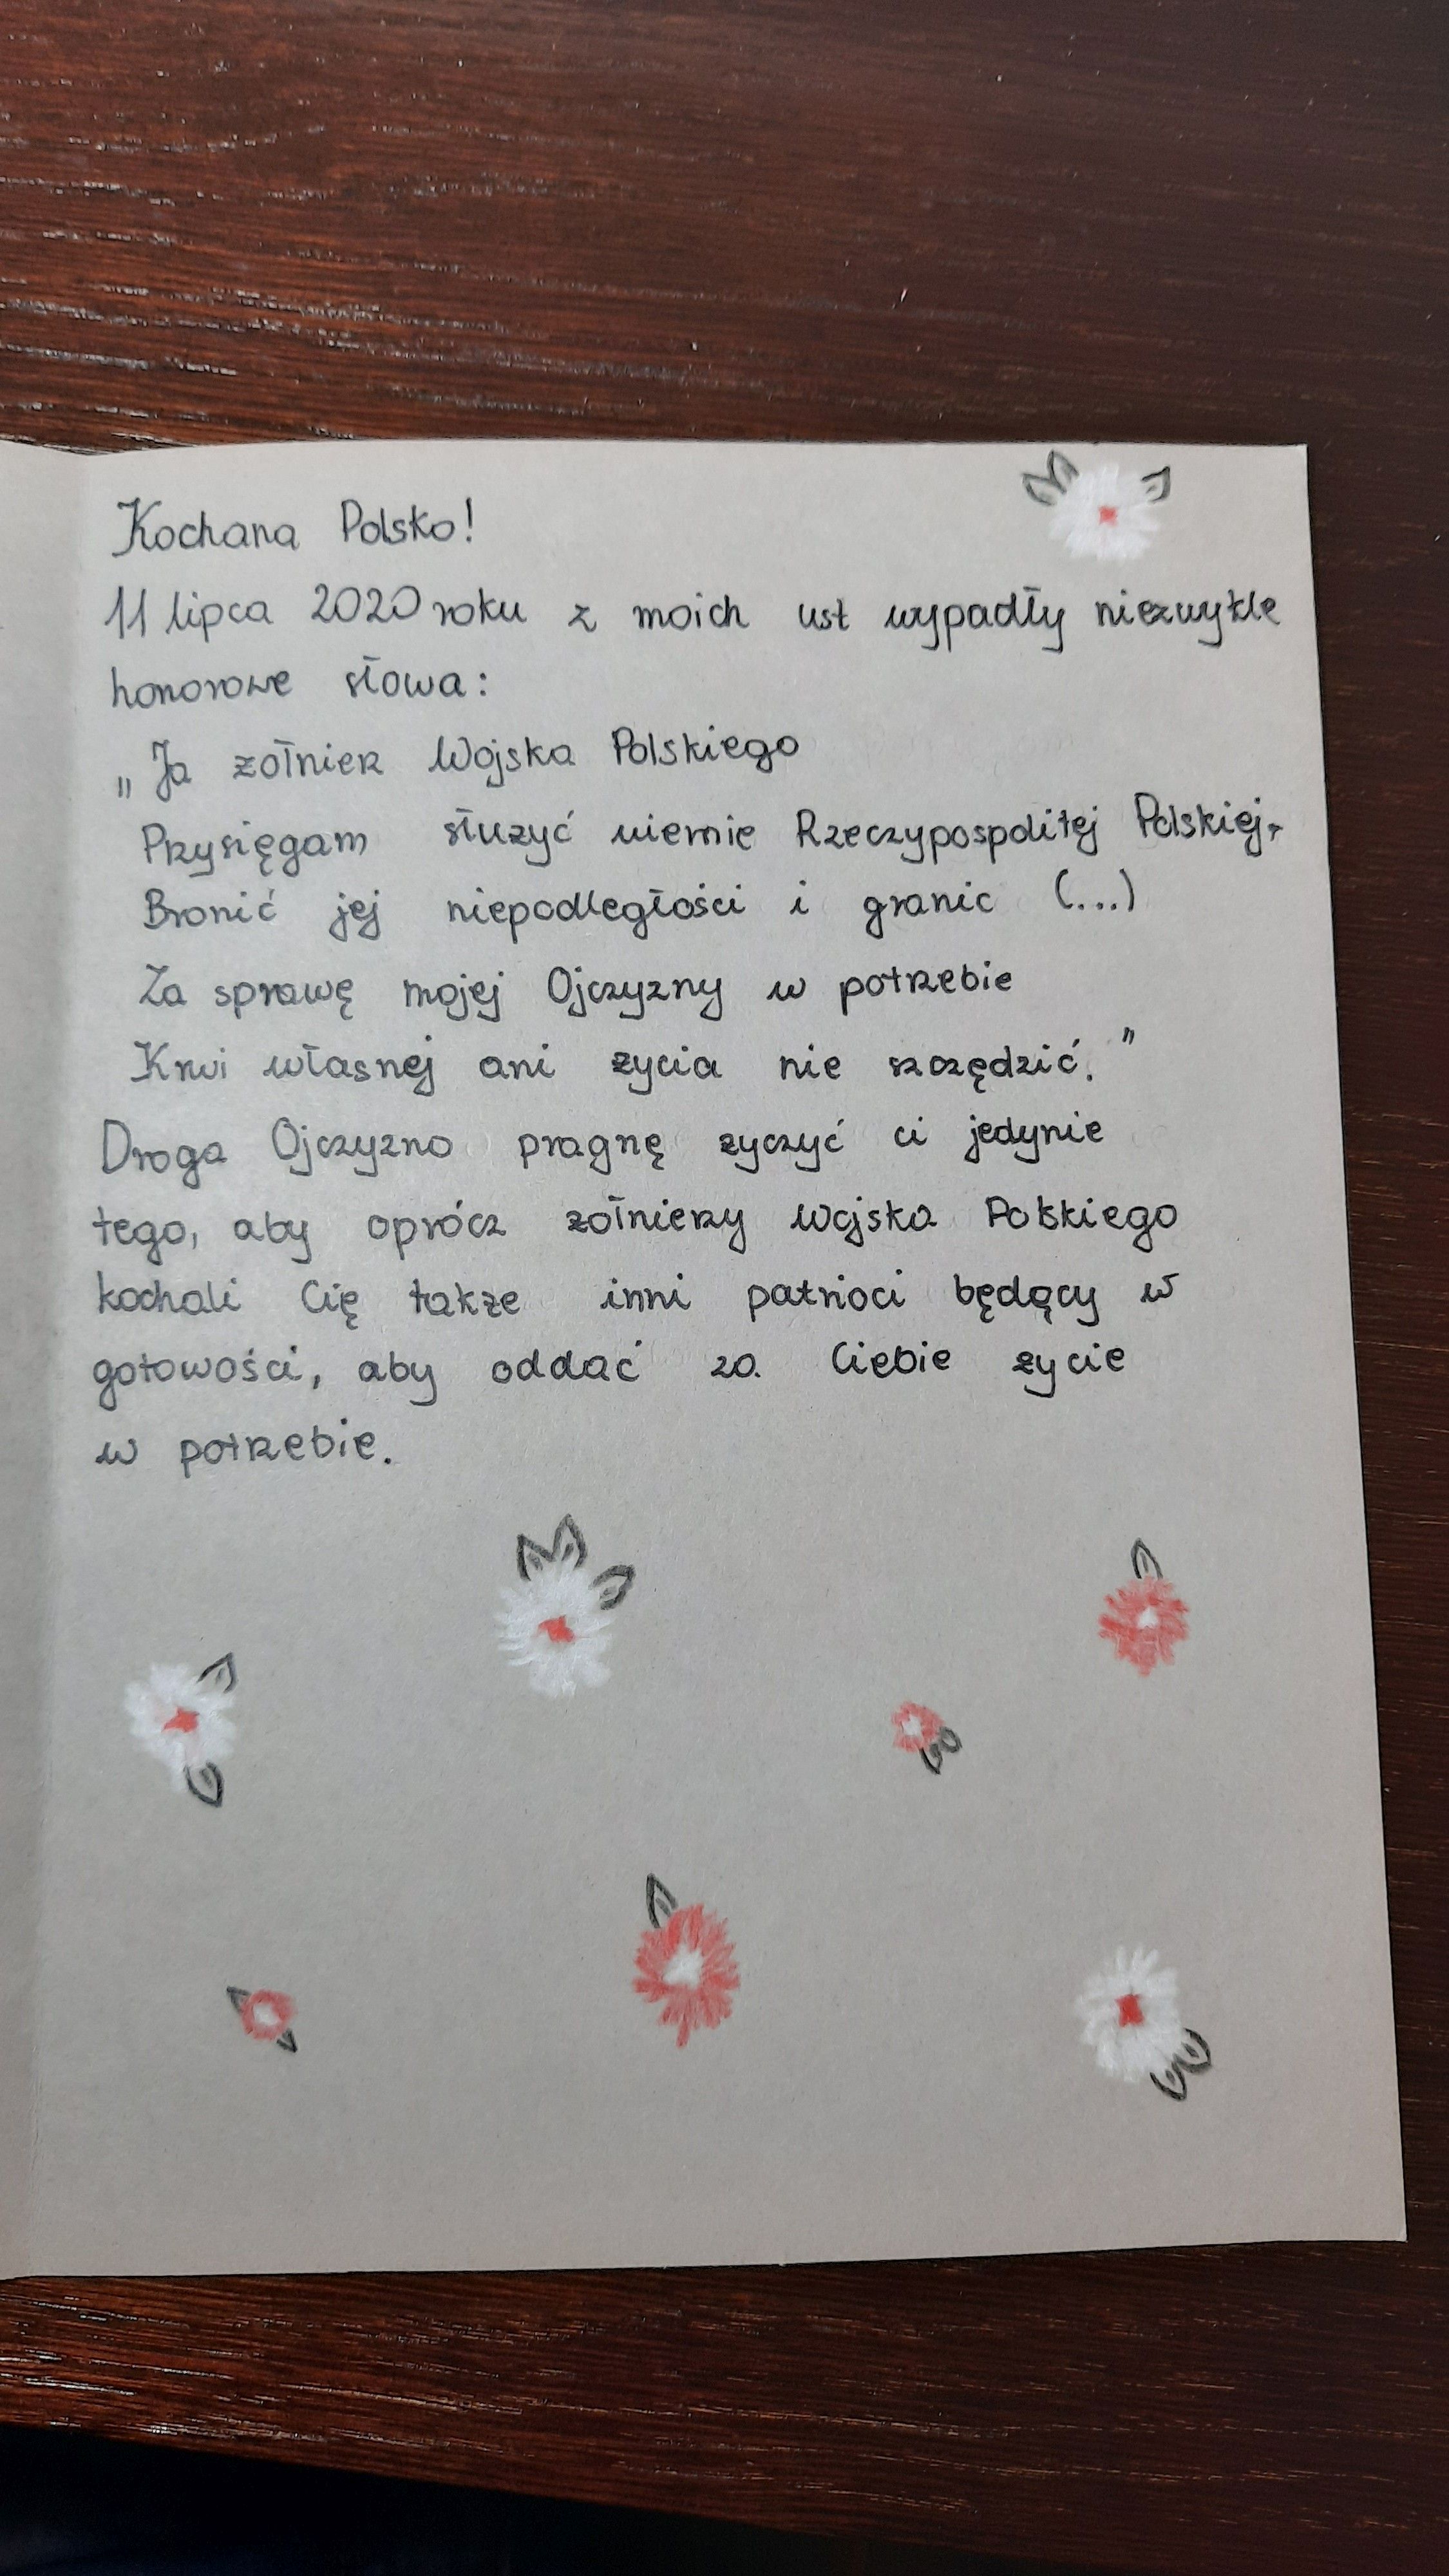 Kochana Polsko!
11 lipca 2020 roku z moich ust wypadły niezwykle
honorowe słowa:
„Ja żołnierz Wojska Polskiego
Przysięgam służyć wiernie Rzeczypospolitej Polskiej,
Bronić jej niepodległości i granic (...)
Za sprawę mojej Ojczyzny w potrzebie
Krwi własnej ani życia nie szczędzić."
Droga Ojczyzno pragnę życzyć ci jedynie
tego, aby oprócz żołnierzy Wojska Polskiego
kochali Cię także inni patrioci będący w
gotowości, aby oddać za Ciebie życie
w potrzebie.